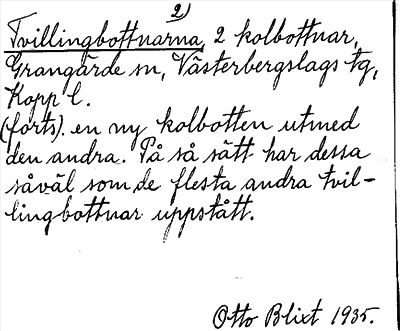 2)
Tvillingbottnarna, 2 kolbottnar,
Grangärde sn, Västerbergslags tg,
Kopp l.
(forts). en ny kolbotten utmed
den andra. På så sätt har dessa
såväl som de flesta andra tvil-
lingbottnar uppstått.
Otto Blixt 1935.